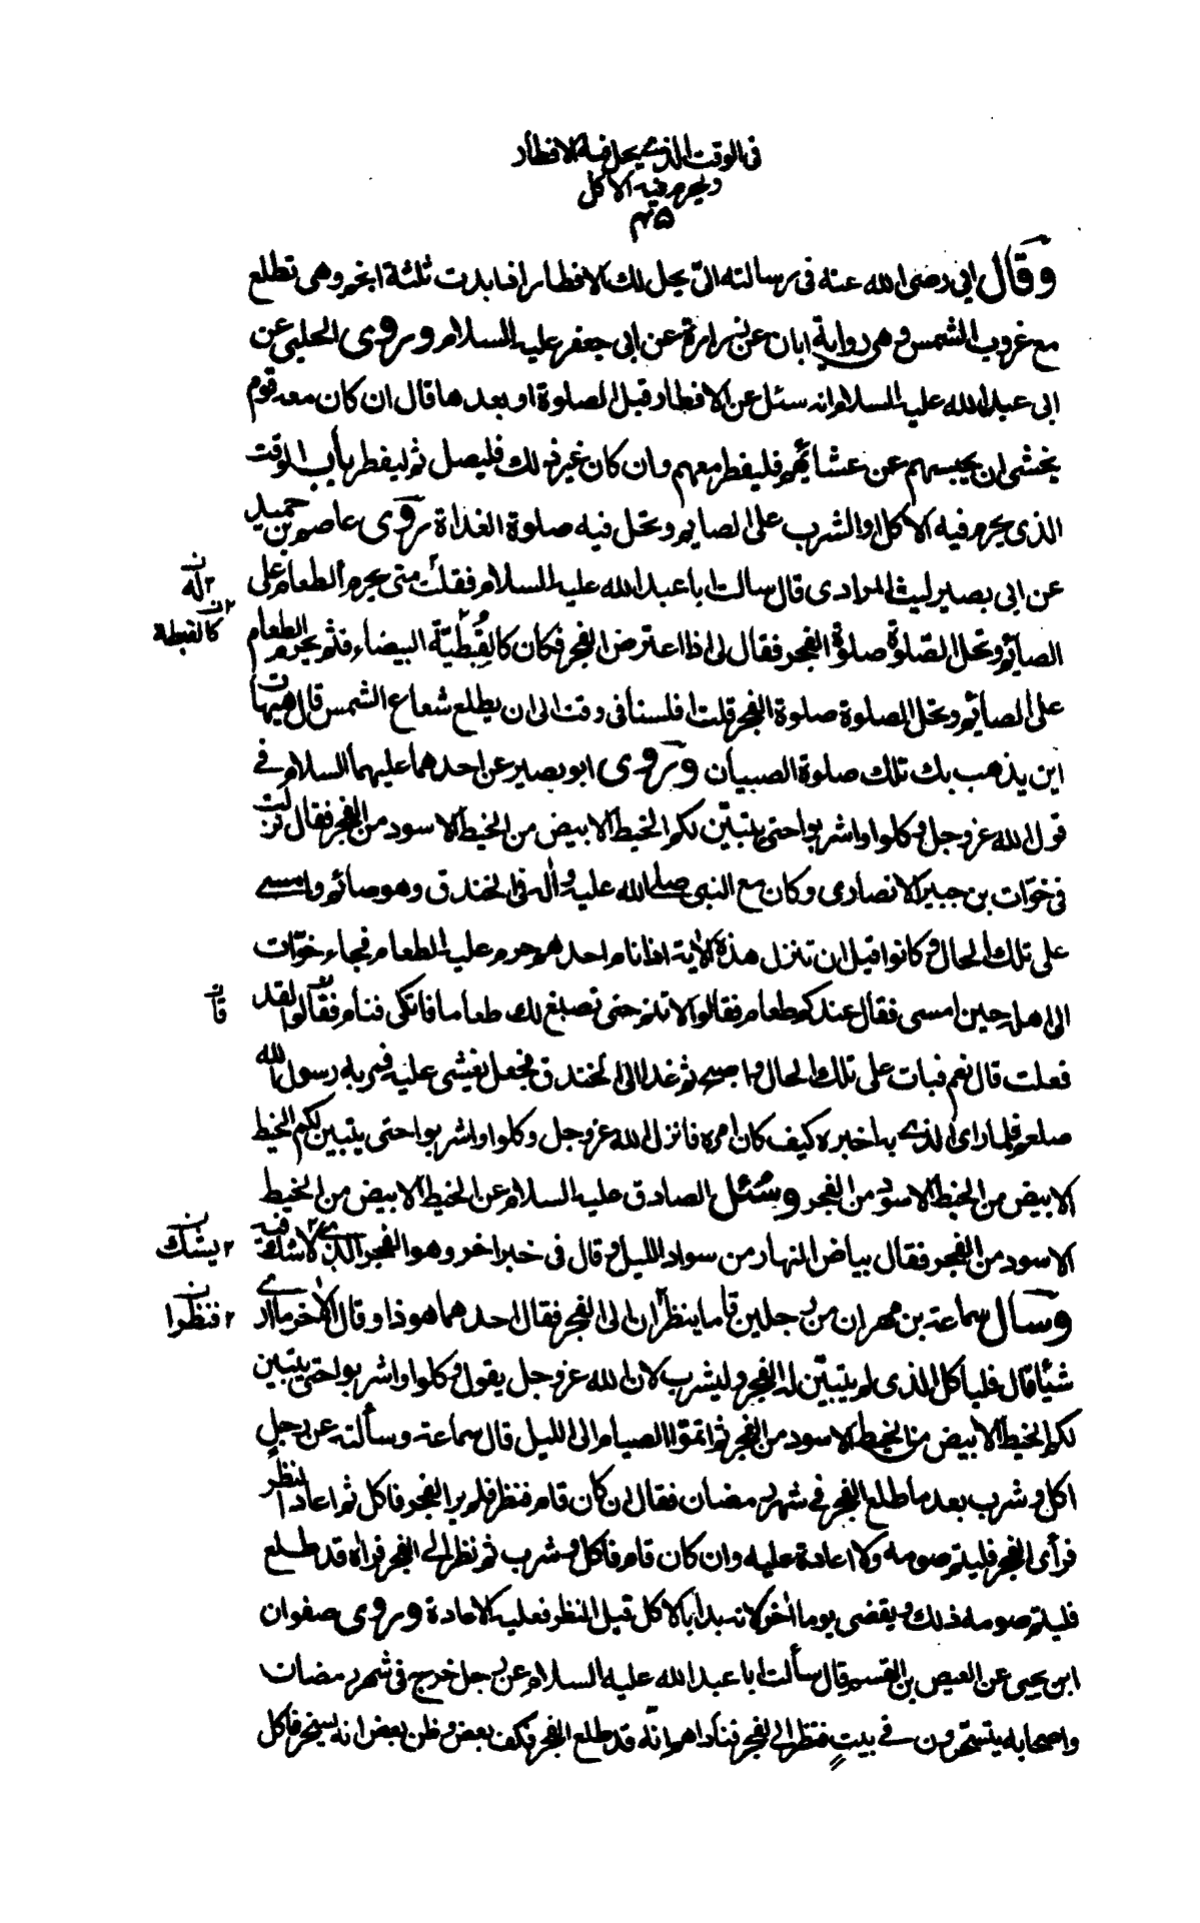 فى الوقت الذى يحل فيه الافطار
ويحرم فيه الاكل
وقال ابى رضى الله عنه فى رسالته الىّ يحل لك الافطار اذا بدت ثلثة انجم وهى تطلع
مع غروب الشمس وهى رواية ابان عن زرارة عن ابى جعفر عليه السلام وروى الحلبى عن
ابى عبد الله عليه السلام انه سئل عن الافطار قبل الصلوة او بعدها قال ان كان معه قوم
يخشى ان يحبسهم عن عشائهم فليفطر معهم وان كان غير ذلك فليصل ثم ليفطر باب الوقت
الذى يحرم فيه الاكل والشرب على الصايم وتحل فيه صلوة الغداة روى عاصم بن حميد
عن ابى بصير ليث المرادى قال سالت ابا عبد الله عليه السلام فقلت متى يحرم الطعام على
الصائم وتحل الصّلوة صلوة الفجر فقال لى اذا اعترض الفجر فكان كالقُبطيّة البيضاء فثم يحرم الطعام
على الصائم وتحل الصلوة صلوة الفجر قلت افلسنا فى وقت الى ان يطلع شعاع الشمس قال هيهات
اين يذهب بك تلك صلوة الصبيان وروى ابو بصير عن احدهما عليهما السلام فى
قول الله عز وجل وكلوا واشربوا حتى يتبيّن لكم الخيط الابيض من الخيط الاسود من الفجر فقال نزلت
فى خوّات بن جبير الانصارى وكان مع النبى صلى الله عليه واله فى الخندق وهو صائم وامسى
على تلك الحال وكانوا قبل ان تنزل هذه الاية اذا نام احدهم حرم عليه الطعام فجاء خوّات
الى اهله حين امسى فقال عندكم طعام فقالوا لا تنم حتى نصنع لك طعاما فاتكى فنام فقالوا لقد
فعلت قال نعم فبات على تلك الحال واصبح ثم غدا الى الخندق فجعل يغشى عليه فمر به رسول الله
صلعم فلما راى الذى به اخبره كيف كان امره فانزل الله عز وجل وكلوا واشربوا حتى يتبين لكم الخيط
الابيض من الخيط الاسود من الفجر وسُئل الصادق عليه السلام عن الخيط الابيض من الخيط
الاسود من الفجر فقال بياض النهار من سواد الليل وقال فى خبر اخر وهو الفجر الذى لاشك فيه
وسال سماعة بن مهران من رجلين قاما ينظران الى الفجر فقال احدهما هوذا وقال الاخر ما ارى
شيئا قال فلياكل الذى لم يتبيّن له الفجر وليشرب لان الله عز وجل يقول وكلوا واشربوا حتى يتبين
لكم الخيط الابيض من الخيط الاسود من الفجر ثم اتمّوا الصيام الى الليل قال سماعة وسألته عن رجل
اكل وشرب بعد ما طلع الفجر فى شهر رمضان فقال ان كان قام فنظر فلم ير الفجر فاكل ثم اعاد النظر
فرأى الفجر فليتم صومه ولا اعادة عليه وان كان قام فاكل وشرب ثم نظر الى الفجر فراه قد طلع
فليتم صومه ذلك ويقضى يوما اخر لانه بدا بالاكل قبل النظر فعليه الاعادة وروى صفوان
ابن يحيى عن العيص بن القسم قال سألت ابا عبد الله عليه السلام عن رجل خرج فى شهر رمضان
واصحابه يتسحّرون فى بيت فنظر الى الفجر فناداهم انّه قد طلع الفجر فكف بعض وظن بعض انه يسخر فاكل
له
كالقبطة
قال
يشك
فنظرا